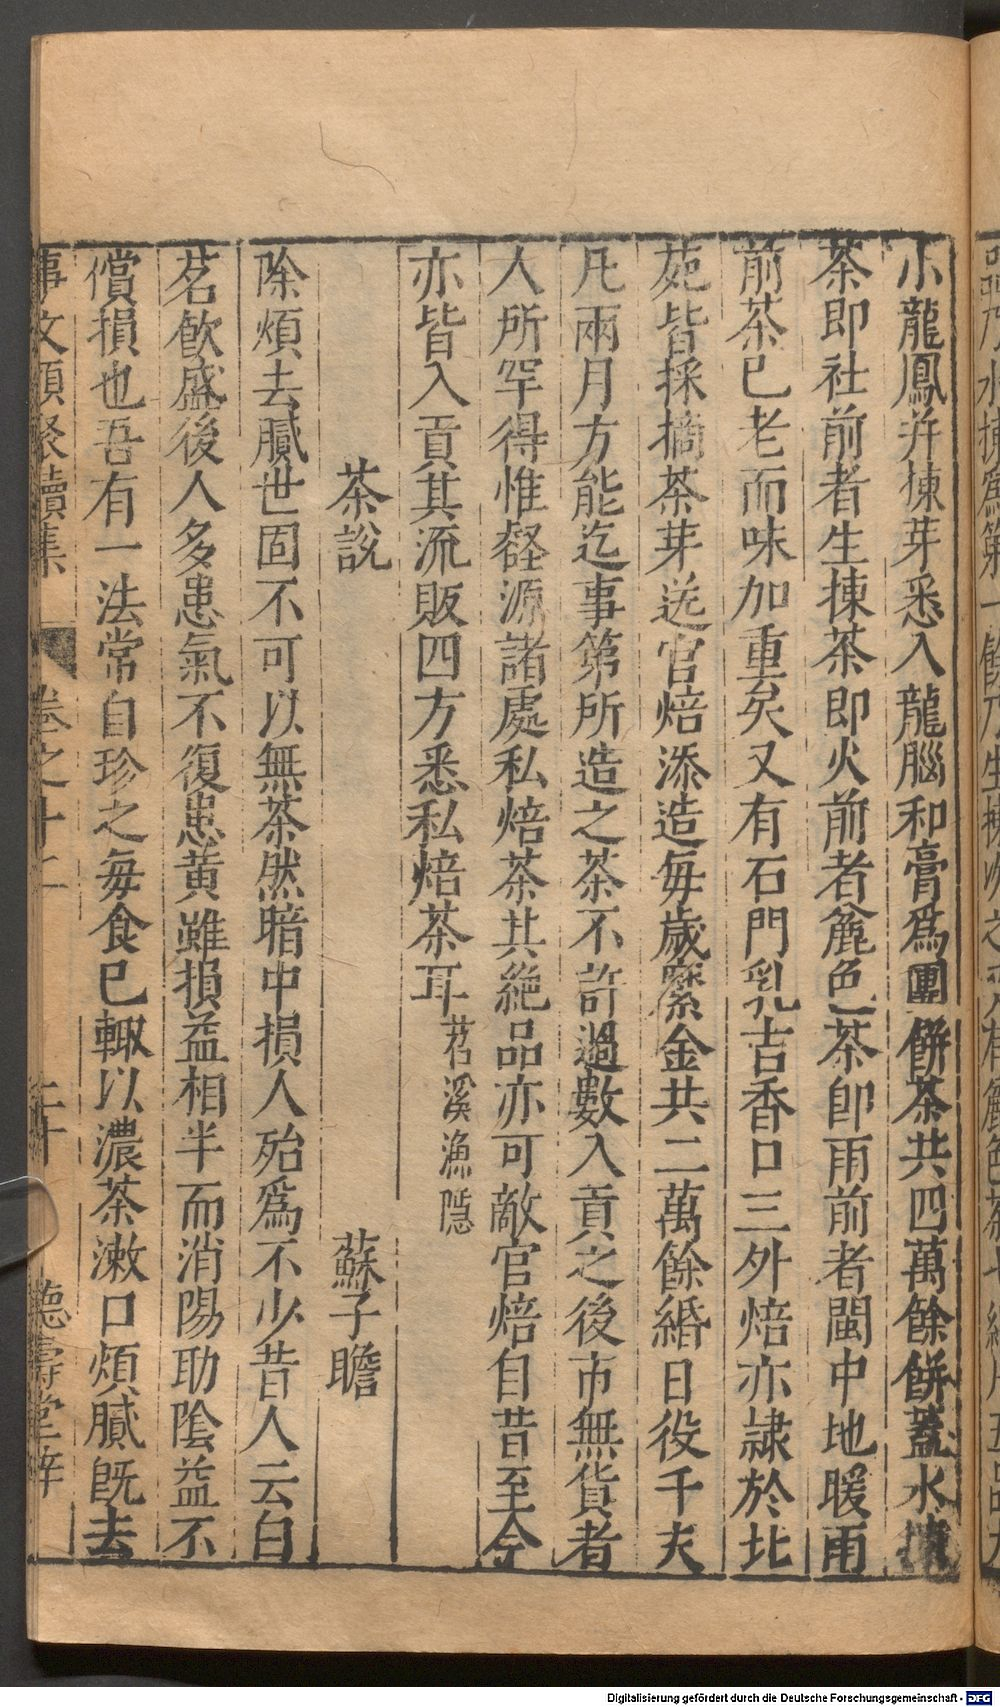 小龍鳳并揀芽悉入龍腦和膏爲團餅茶共四萬餘餅蓋水揀
茶即社前者生揀茶即火前者麄色茶即雨前者閩中地暖雨
前茶已老而味加重矣又有石門乳吉香口三外焙亦隷於北
苑皆採摘茶芽送官焙添造每歲縻金共二萬餘緡日役千夫
凡兩月方能迄事第所造之茶不許過數入貢之後市無貨者
人所罕得惟壑源諸處私焙茶其絶品亦可敵官焙自昔至今
亦皆入貢其流販四方悉私焙茶耳苕溪漁隱
茶說 蘇子瞻
除煩去膩世固不可以無茶然暗中損人殆爲不少昔人云自
茗飮盛後人多患氣不復患黄雖損益相半而消陽助陰益不
償損也吾有一法常自珍之每食已輙以濃茶漱口煩膩旣去
事文類聚續集 卷之十二 二十 德壽堂梓
Digitalisierung gefördert durch die Deutsche Forschungsgemeinschaft - DFG